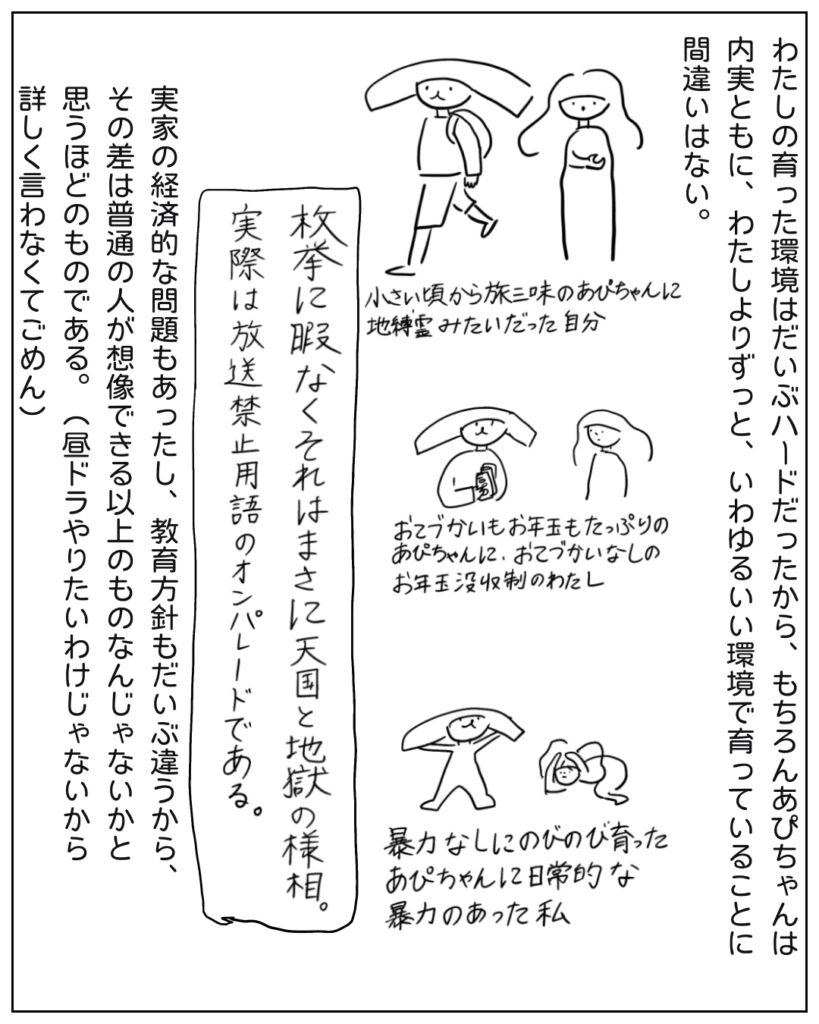 わたしの育った環境はだいぶハードだったから、もちろんあぴちゃんは
内実ともに、わたしよりずっと、いわゆるいい環境で育っていることに
間違いはない。
小さい頃から旅三味のあぴちゃんに
地縛霊みたいだった自分
おてづかいもお年玉もたっぷりの
あぴちゃんに、おてづかいなしの
お年玉没収制のわたし
暴力なしにのびのび育った
あぴちゃんに日常的な
暴力のあった私
枚挙に暇なくそれはまさに天国と地獄の様相。
実際は放送禁止用語のオンパレードである。
実家の経済的な問題もあったし、教育方針もだいぶ違うから、
その差は普通の人が想像できる以上のものなんじゃないかと
思うほどのものである。（昼ドラやりたいわけじゃないから
詳しく言わなくてごめん）